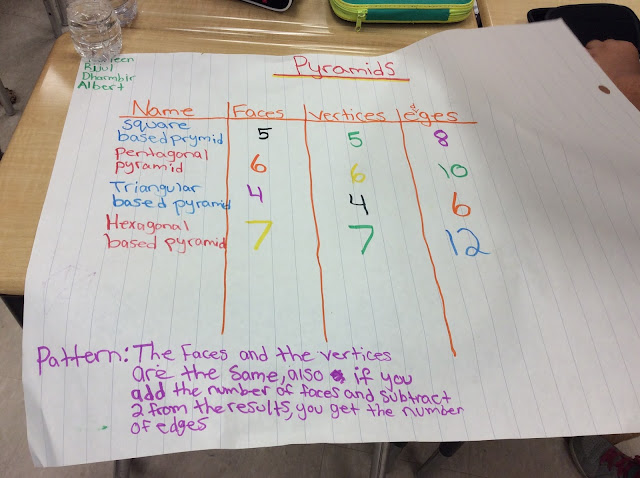 Rijul
Dharmbir
Albert
Pyramids
Name Faces Vertices edges
square
based prymid 5 5 8
Pentagonal
pyramid 6 6 10
Triangular
based pyramid 4 4 6
Hexagonal
based pyramid 7 7 12
Pattern: The Faces and the vertices
are the same, also if you
add the number of faces and subtract
2 from the results, you get the number
of edges